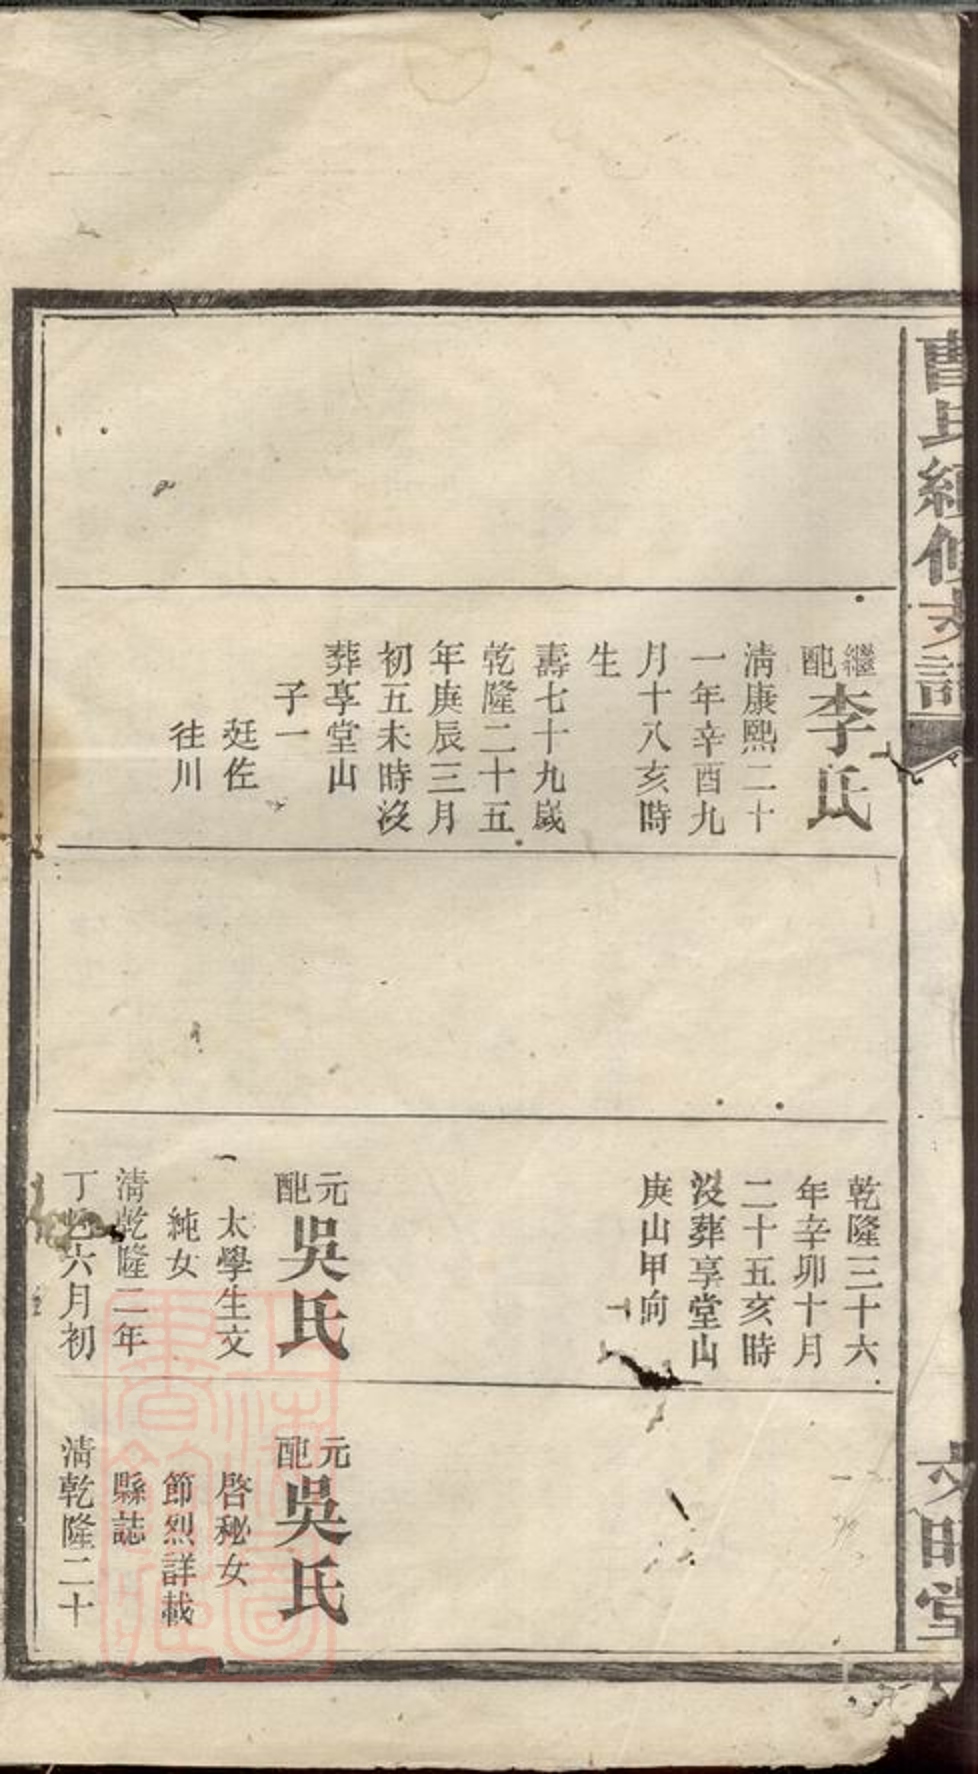 曹氏續修支譜
文明堂
繼配李氏
清康熙二十
一年辛酉九
月十八亥時
生
壽七十九歲
乾隆二十五
年庚辰三月
初五未時沒
葬享堂山
子一
廷佐
往川
乾隆三十六
年辛卯十月
二十五亥時
沒葬享堂山
庚山甲向
元配吳氏
太學生文
純女
清乾隆二年
丁巳六月初
元配吳氏
啓秘女
節烈詳載
縣誌
清乾隆二十